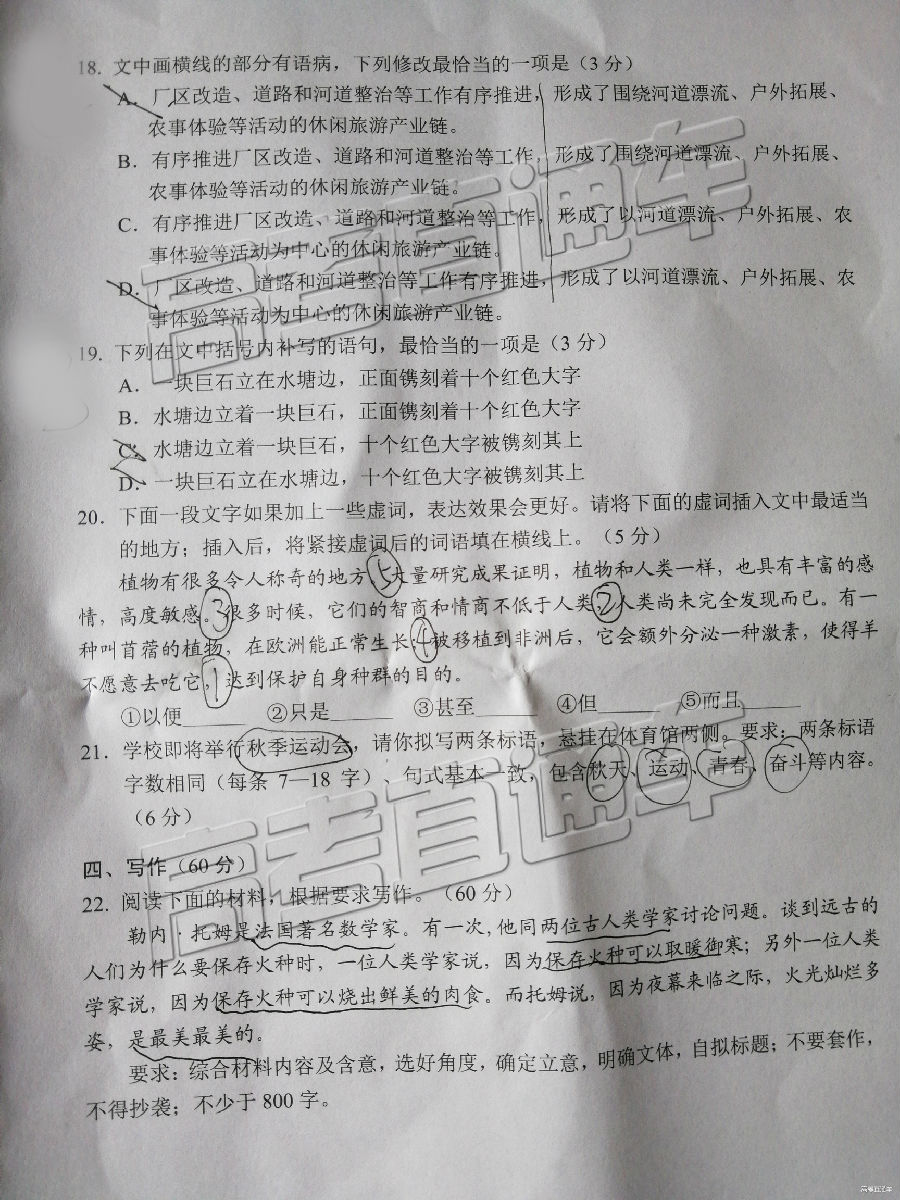 18．文中画横线的部分有语病，下列修改最恰当的一项是（3分）
A．厂区改造、道路和河道整治等工作有序推进，形成了围绕河道漂流、户外拓展、
农事体验等活动的休闲旅游产业链。
B．有序推进厂区改造、道路和河道整治等工作，形成了围绕河道漂流、户外拓展、
农事体验等活动的休闲旅游产业链。
C．有序推进厂区改造、道路和河道整治等工作，形成了以河道漂流、户外拓展、农
事体验等活动为中心的休闲旅游产业链。
D．厂区改造、道路和河道整治等工作有序推进，形成了以河道漂流、户外拓展、农
事体验等活动为中心的休闲旅游产业链。
19．下列在文中括号内补写的语句，最恰当的一项是（3分）
A．一块巨石立在水塘边，正面镌刻着十个红色大字
B．水塘边立着一块巨石，正面镌刻着十个红色大字
C．水塘边立着一块巨石，十个红色大字被镌刻其上
D．一块巨石立在水塘边，十个红色大字被镌刻其上
20．下面一段文字如果加上一些虚词，表达效果会更好。请将下面的虚词插入文中最适当
的地方；插入后，将紧接虚词后的词语填在横线上。（5分）
植物有很多令人称奇的地方，5大量研究成果证明，植物和人类一样，也具有丰富的感
情，高度敏感。3很多时候，它们的智商和情商不低于人类，2人类尚未完全发现而已。有一
种叫苜蓿的植物，在欧洲能正常生长，4被移植到非洲后，它会额外分泌一种激素，使得羊
不愿意去吃它，1达到保护自身种群的目的。
①以便______ ②只是______ ③甚至______ ④但______ ⑤而且______
21．学校即将举行秋季运动会，请你拟写两条标语，悬挂在体育馆两侧。要求：两条标语
字数相同（每条 7—18 字）、句式基本一致，包含秋天、运动、青春、奋斗等内容。
（6分）
四、写作（60分）
22．阅读下面的材料，根据要求写作。（60分）
勒内·托姆是法国著名数学家。有一次，他同两位古人类学家讨论问题。谈到远古的
人们为什么要保存火种时，一位人类学家说，因为保存火种可以取暖御寒；另外一位人类
学家说，因为保存火种可以烧出鲜美的肉食。而托姆说，因为夜幕来临之际，火光灿烂多
姿，是最美最美的。
要求：综合材料内容及含意，选好角度，确定立意，明确文体，自拟标题；不要套作，
不得抄袭；不少于800字。
高考直通车
高考直通车
高考直通车